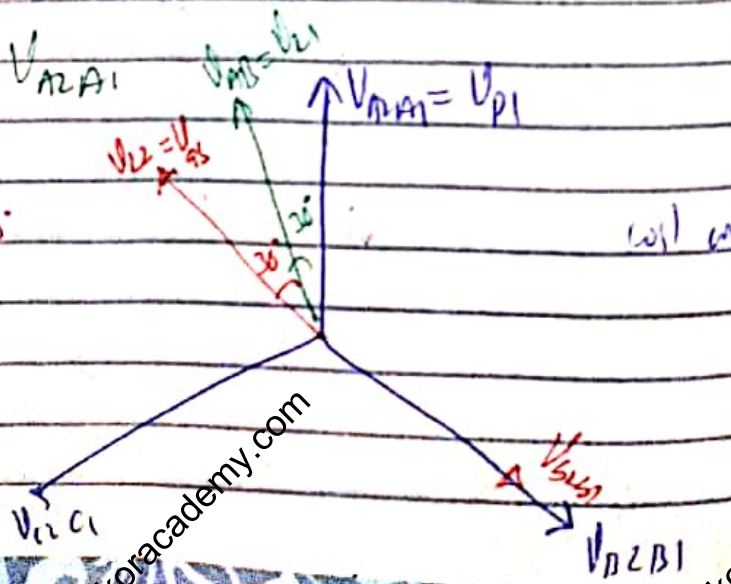 V_A2A1
V_AB = V_L1
V_A2A1 = V_P1
V_L2 = V_as
30°
30°
V_C2C1
V_B2B1
oracademy.com